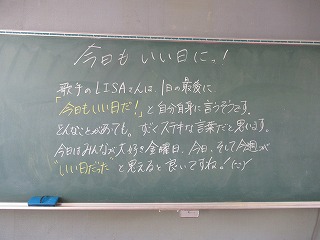 今日も いい日にっ!
歌手のLISAさんは、1日の最後に
「今日もいい日だ!」と自分自身に言うそうです。
どんなことがあっても。すごくステキな言葉だと思います。
今日はみんなが大好き金曜日。今日、そして今週が
"いい日だった"と思えると良いですね!